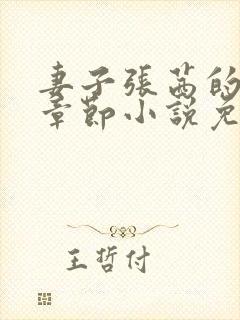 妻子張茜的
章節小說免
王哲付